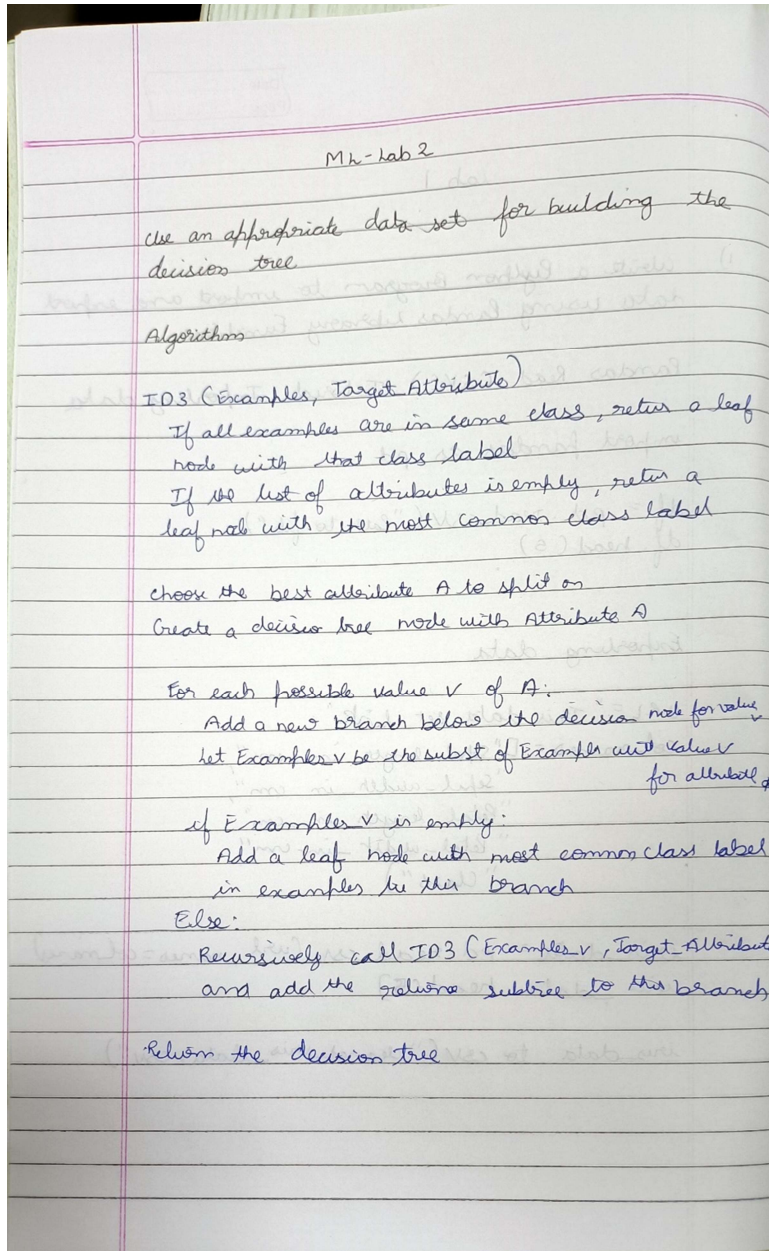 ML-Lab 2
Use an appropriate data set for building the
decision tree
Algorithm
ID3 (Examples, Target_Attribute)
If all examples are in same class, retur a leaf
node with that class label
If the list of attributes is empty, retur a
leaf node with the most common class label
choose the best attribute A to split on
Create a decision tree node with Attribute A
For each possible value v of A:
Add a new branch below the decision node for value v
Let Examples_v be the subst of Examples with value v
for attribute A
if Examples_v is empty:
Add a leaf node with most common class label
in examples to this branch
Else:
Recursively call ID3 (Examples_v, Target_Attribut
and add the subtree to this branch
Return the decision tree